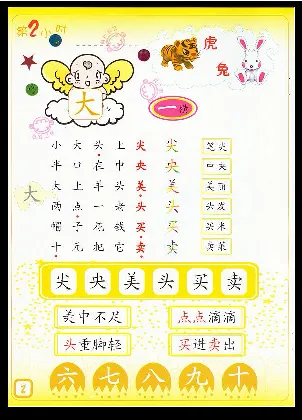 第2小时
虎
兔
大
一读
小 大 头 上 尖 尖 笔尖
半 口 在 中 央 央 中央
大 上 羊 头 美 美 美丽
大
两 点 一 老 头 头 头发
帽 子 元 买 买 买米
十 元 把 钱 卖 卖 卖菜
尖 央 美 头 买 卖
美中不足
点点滴滴
头重脚轻
买进卖出
六 七 八 九 十
2